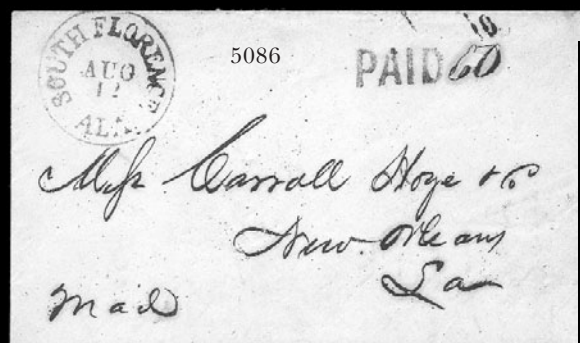 SOUTH FLORENCE
AUG
12
ALA.
5086
PAID 60
Mess Carroll Hoge & Co
New Orleans
La
Mail